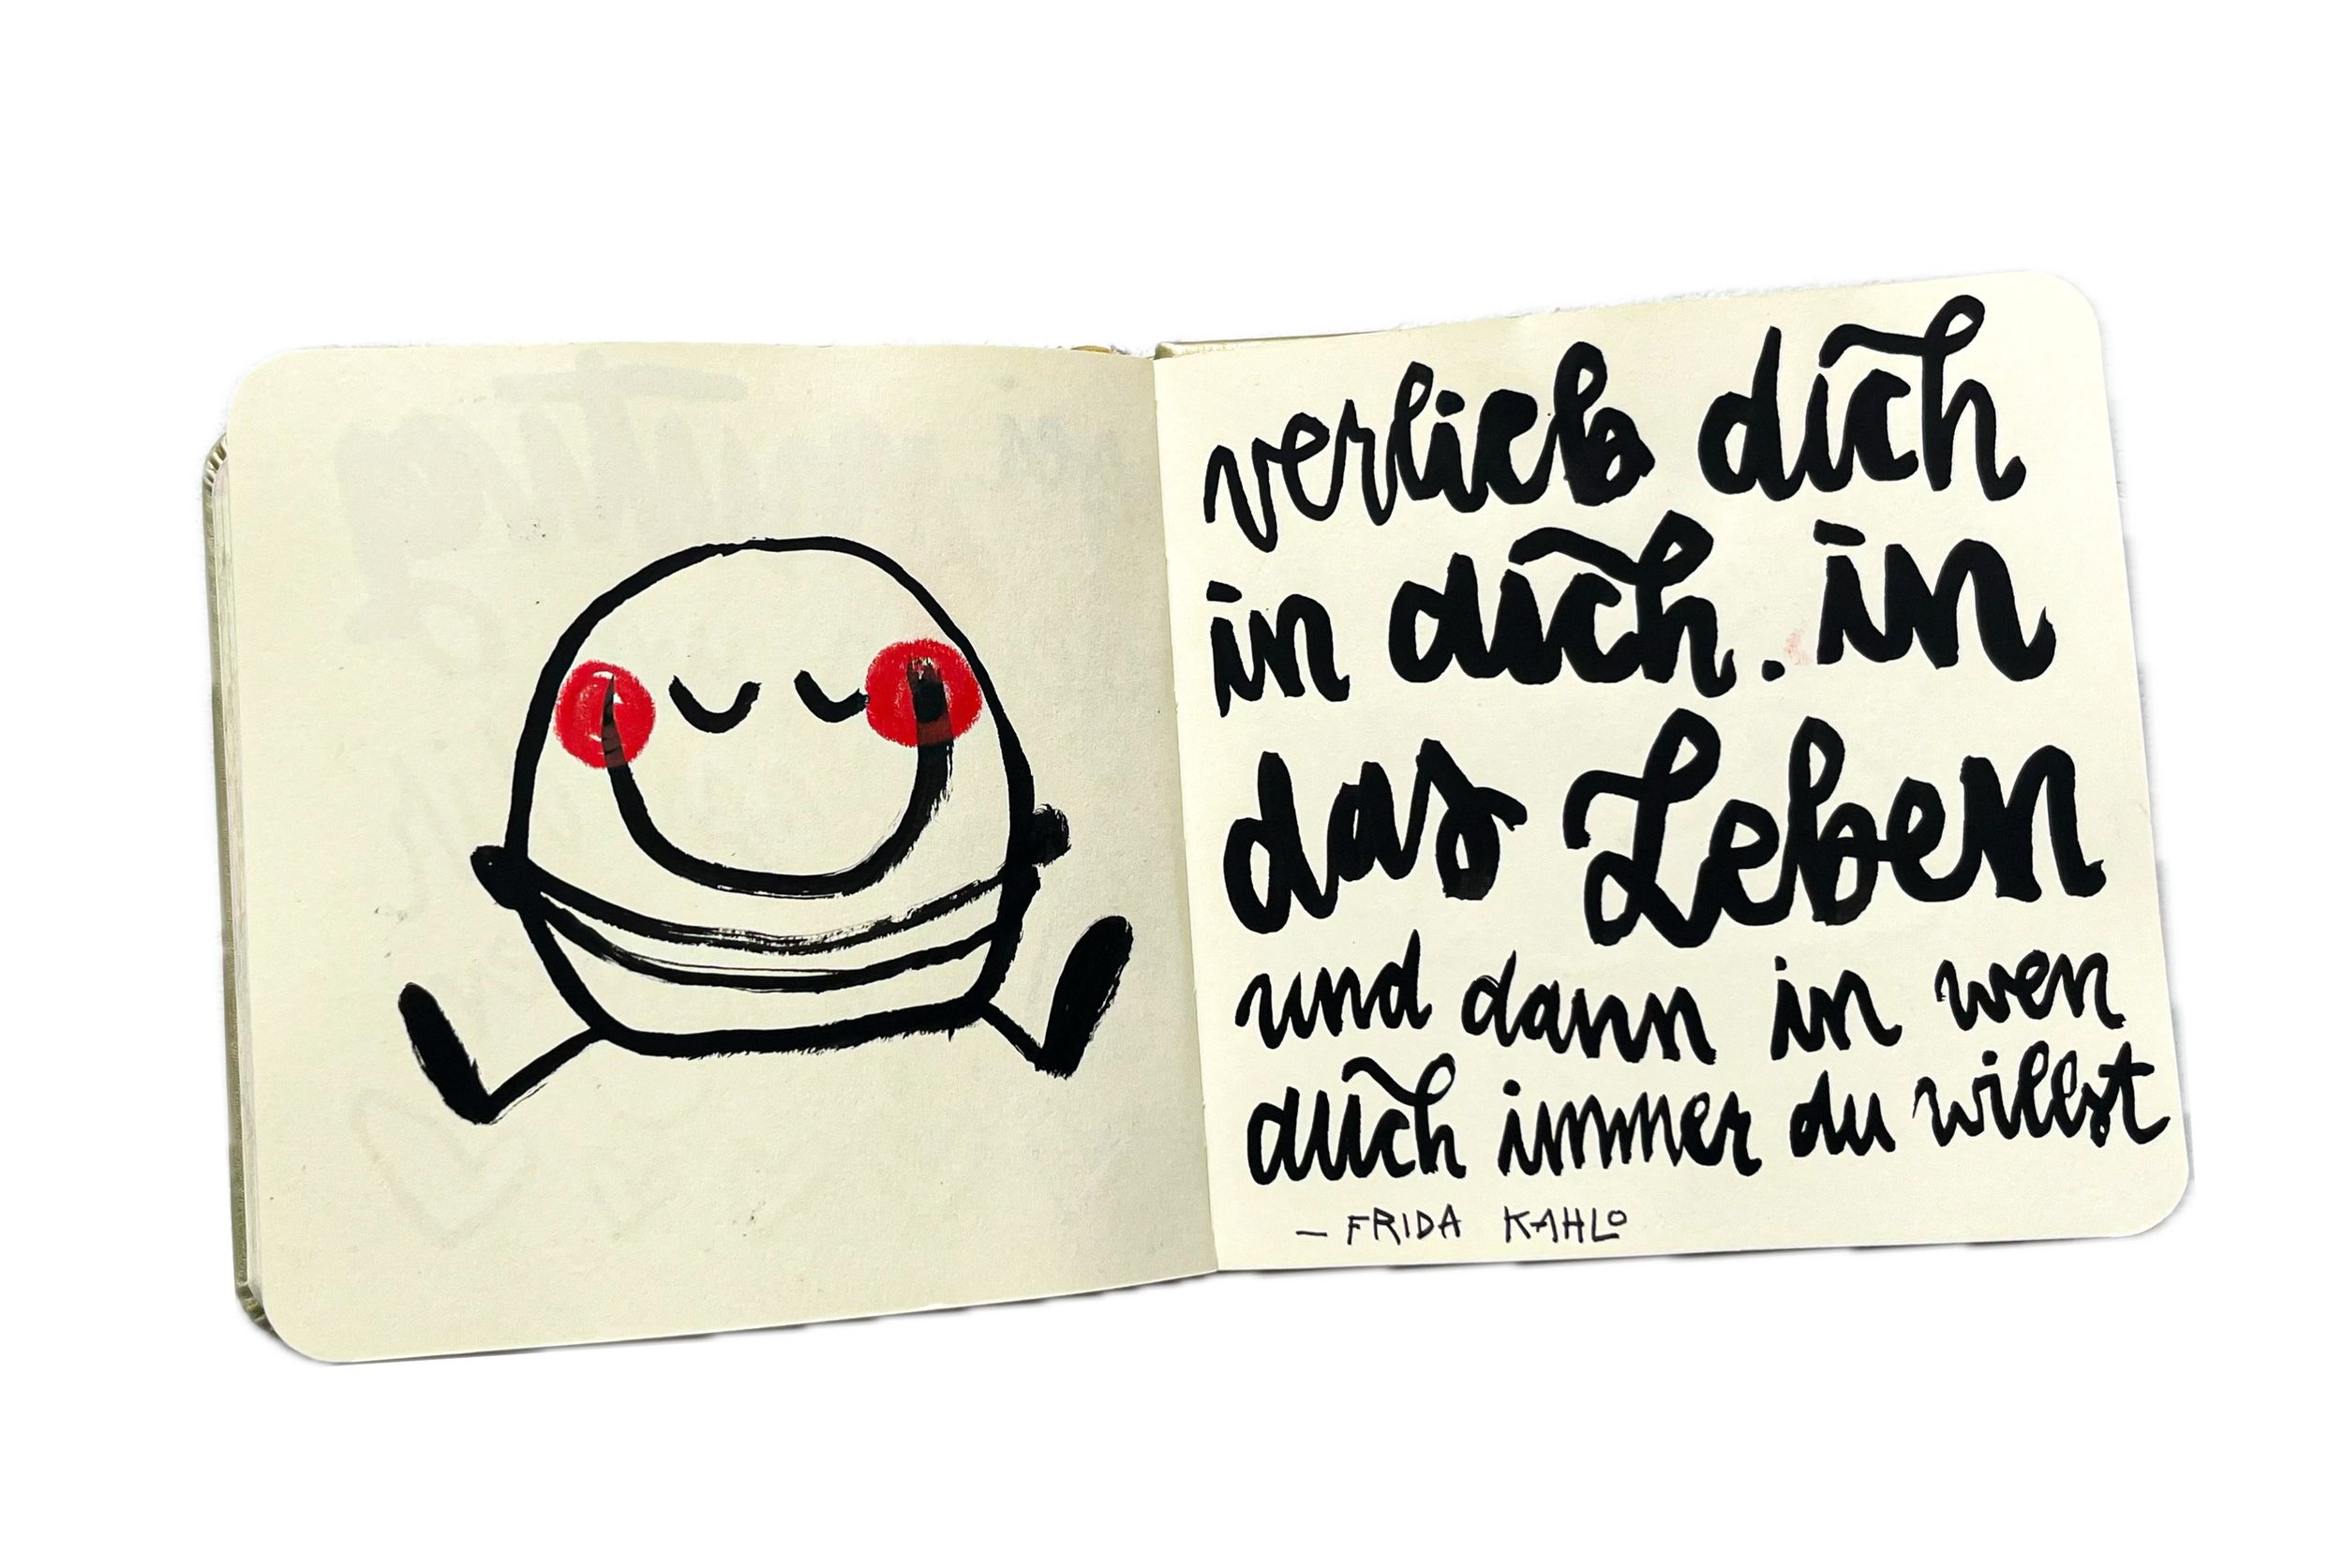 verlieb dich
in dich. in
das Leben
und dann in wen
auch immer du willst
– FRIDA KAHLO